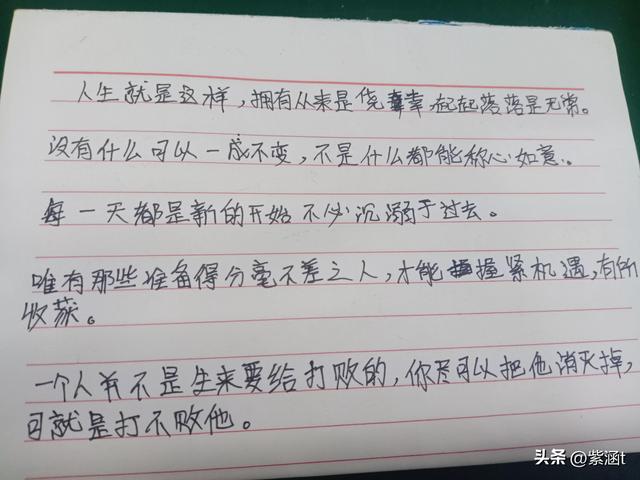 人生就是这样，拥有从来是侥幸，起起落落是无常。
没有什么可以一成不变，不是什么都能称心如意。
每一天都是新的开始不必沉溺于过去。
唯有那些准备得分毫不差之人，才能握紧机遇，有所
收获。
一个人并不是生来要给打败的，你尽可以把他消灭掉，
可就是打不败他。
头条 @紫涵t